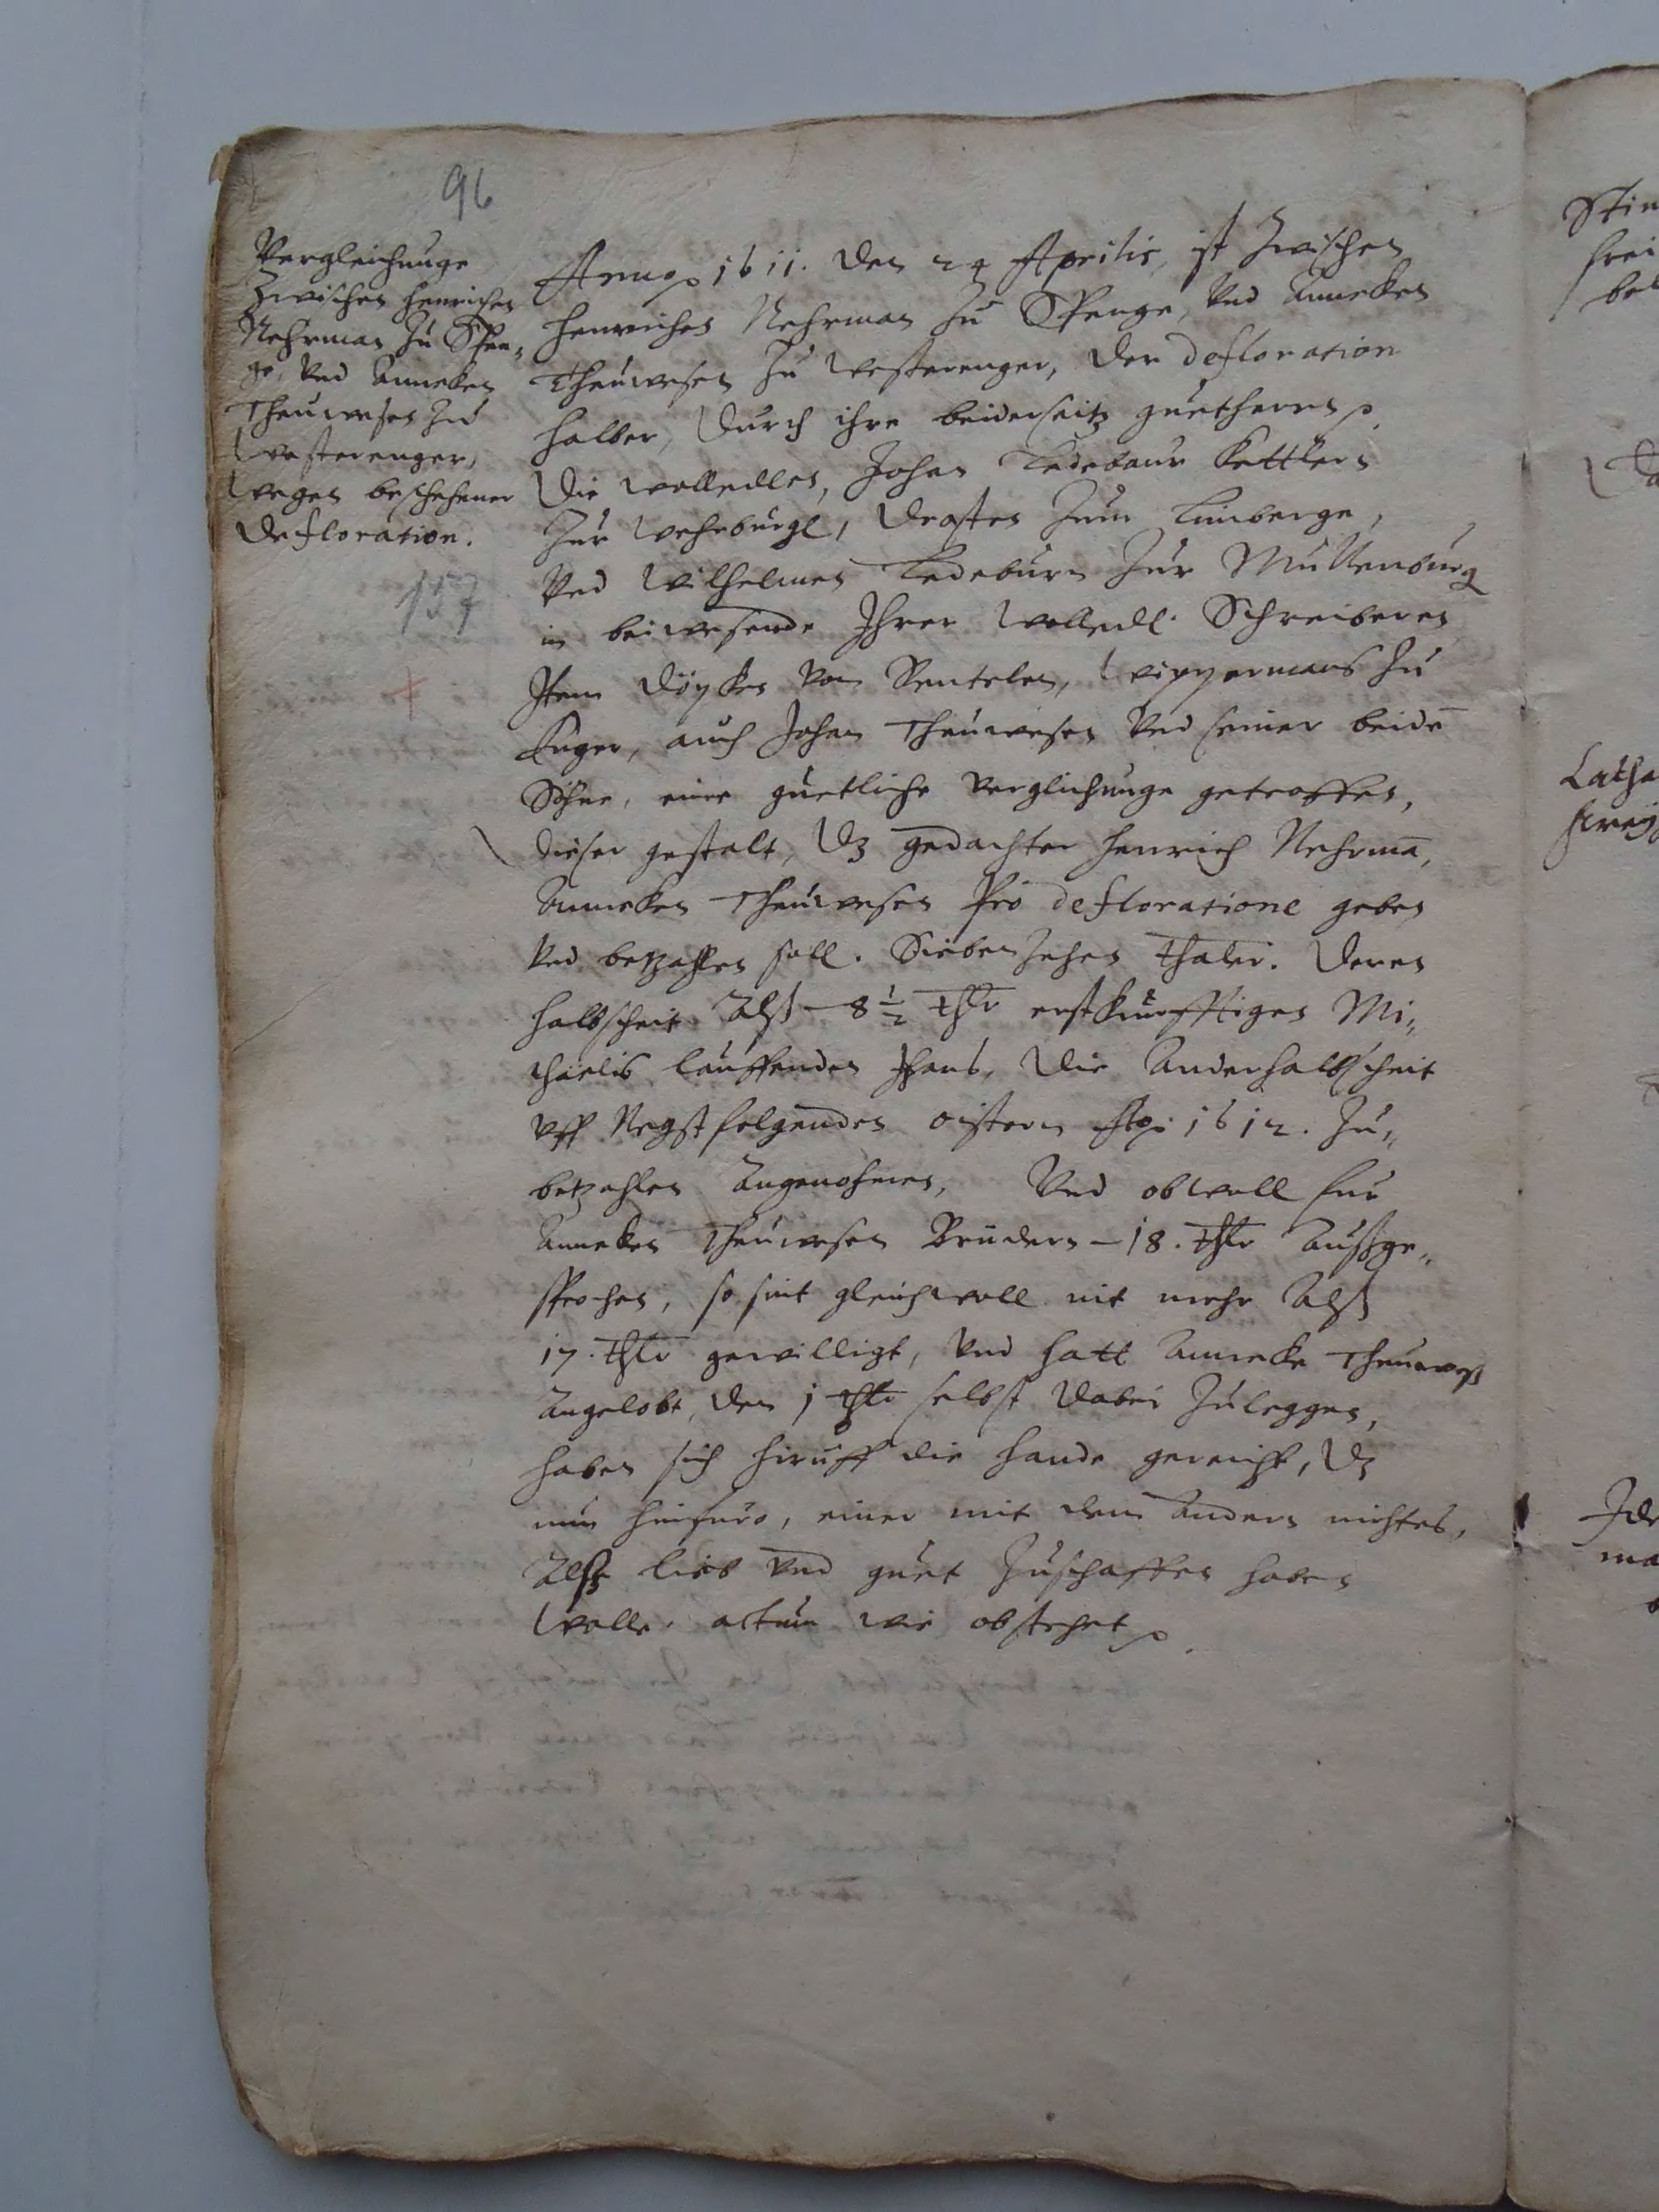 96
Vergleichunge
Zwischen Henrichen
Nehrman zu Spen„
ge, Vnd Anneken
Theuwesen zu
Westerenger,
wegen beschehener
Defloration.
157
Anno 1611. den 24 Aprilis, ist Zwischen
Henrichen Nehrman zu Spenge, Vnd Anneken
Theuwesen zu Westerenger, der defloration
halber, durch ihre beiderseitz guetherrn
die wolledlen, Johan Ledebaur Kettlern
zur Wehrburgk, Drosten zum Limberge,
Vnd Wilhelmen Ledeburn zur Mullenburg
in beiwesende Ihrer Wolledl. Schreiberen
Item von Wippermans zu
Enger, auch Johan Theuwesen Vnd seiner beidē
Söhne, eine guetliche verglichunge getroffen,
dieser gestalt, dz gedachter Henrich Nehrmā,
Anneken Theuwesen pro defloratione geben
Vnd betzahlen soll. Siebenzehen thaler. deren
halbscheit Alß - 8 1/2 thlr erstkunfftigen Mi„
chaelis lauffenden Jhars, die Anderhalbscheit
vff Negstfolgenden oistern Ao 1612. zu„
betzahlen Angenohmen, Vnd obwoll fur
Anneken Theuwesen Brudern - 18. thlr Außge„
sprochen, so sint gleichwoll nit mehr Alß
17. thlr gewilligt, Vnd hatt Anneke Theuweß
Angelobt, den 1 thlr selbst dabei zulegen,
haben sich hiruff die hande gereicht, dz
nun hinfuro, einer mit dem Andern nichtes,
Alß lieb Vnd guet zuschaffen haben
wolle. actum wie obstehet